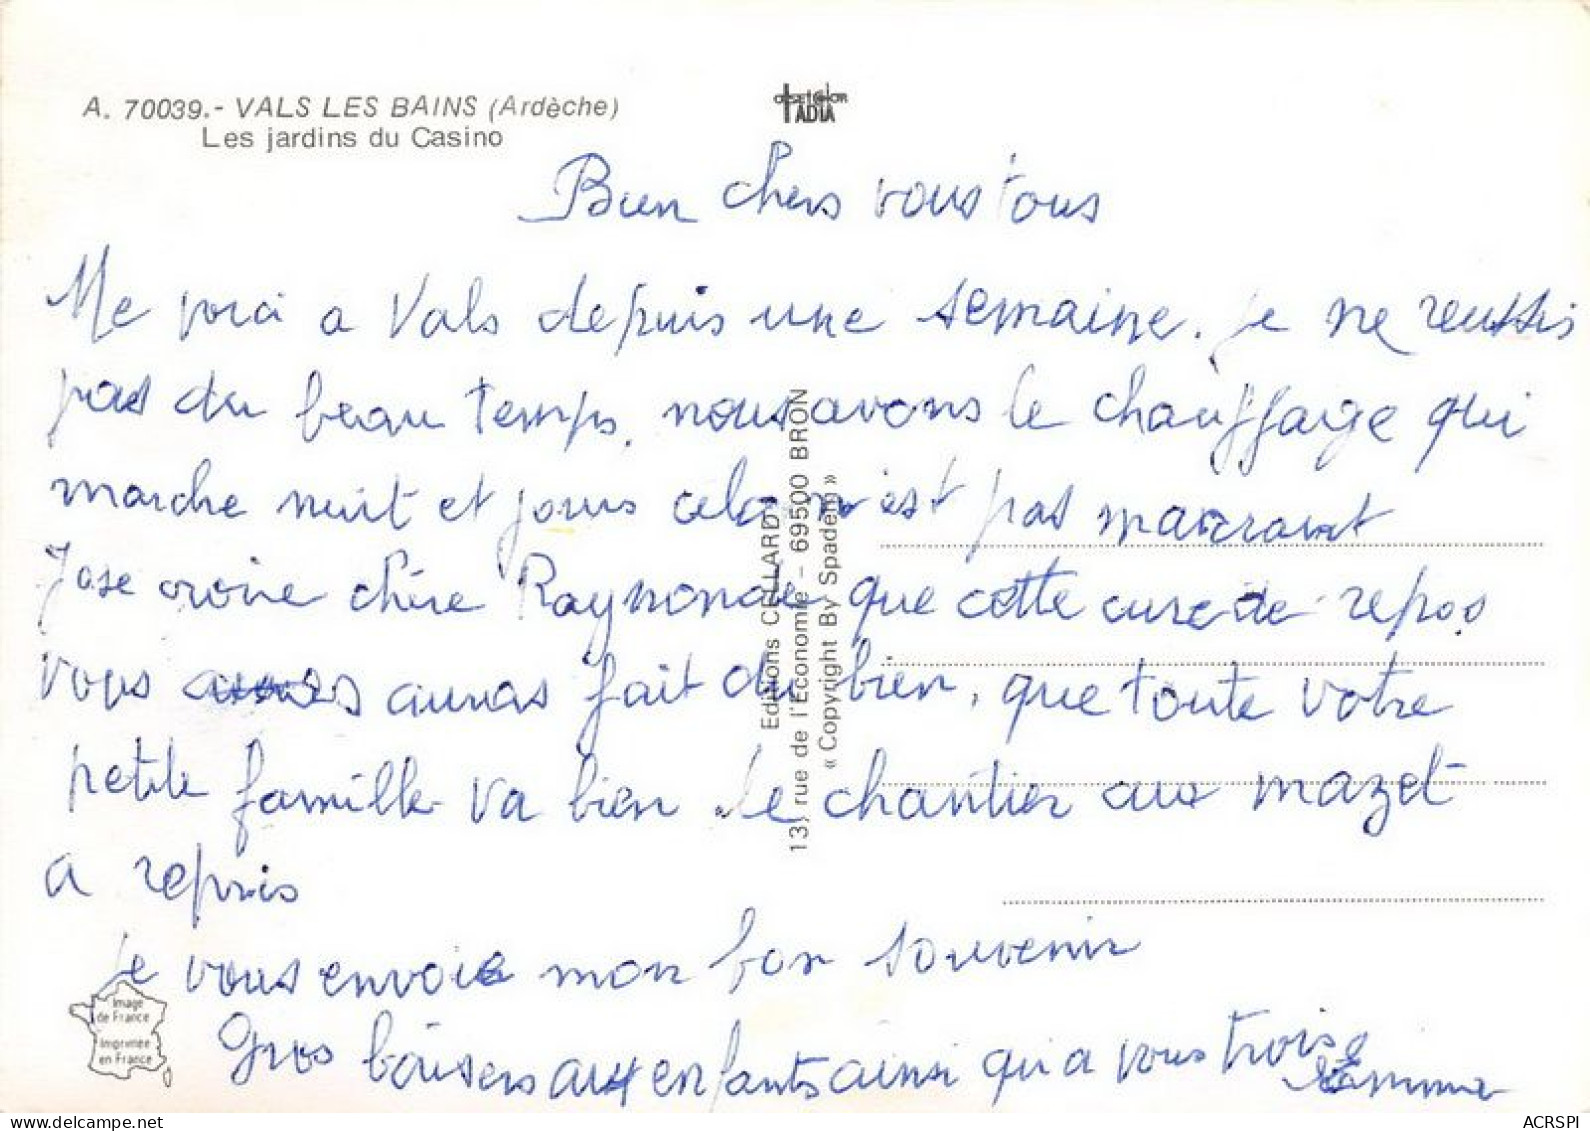 A. 70039.- VALS LES BAINS (Ardèche)
Les jardins du Casino
OFFSETCOLOR
IADIA
Bien chers vous tous
Me voici a Vals depuis une semaine. je ne reussis
pas du beau temps, nous avons le chauffaige qui
marche nuit et jours cela n'est pas marrant
J'ose croire chère Raymonde que cette cure de repos
vous auras fait du bien, que toute votre
petite famille va bien le chantier aux mazet
a repris
je vous envoie mon bon souvenir
Gros baisers aux enfants ainsi qu'a vous trois
Emma
Editions CELLARD
13, rue de l'Economie - 69500 BRON
« Copyright By Spadem »
Image
de France
Imprimée
en France
ACRSPI